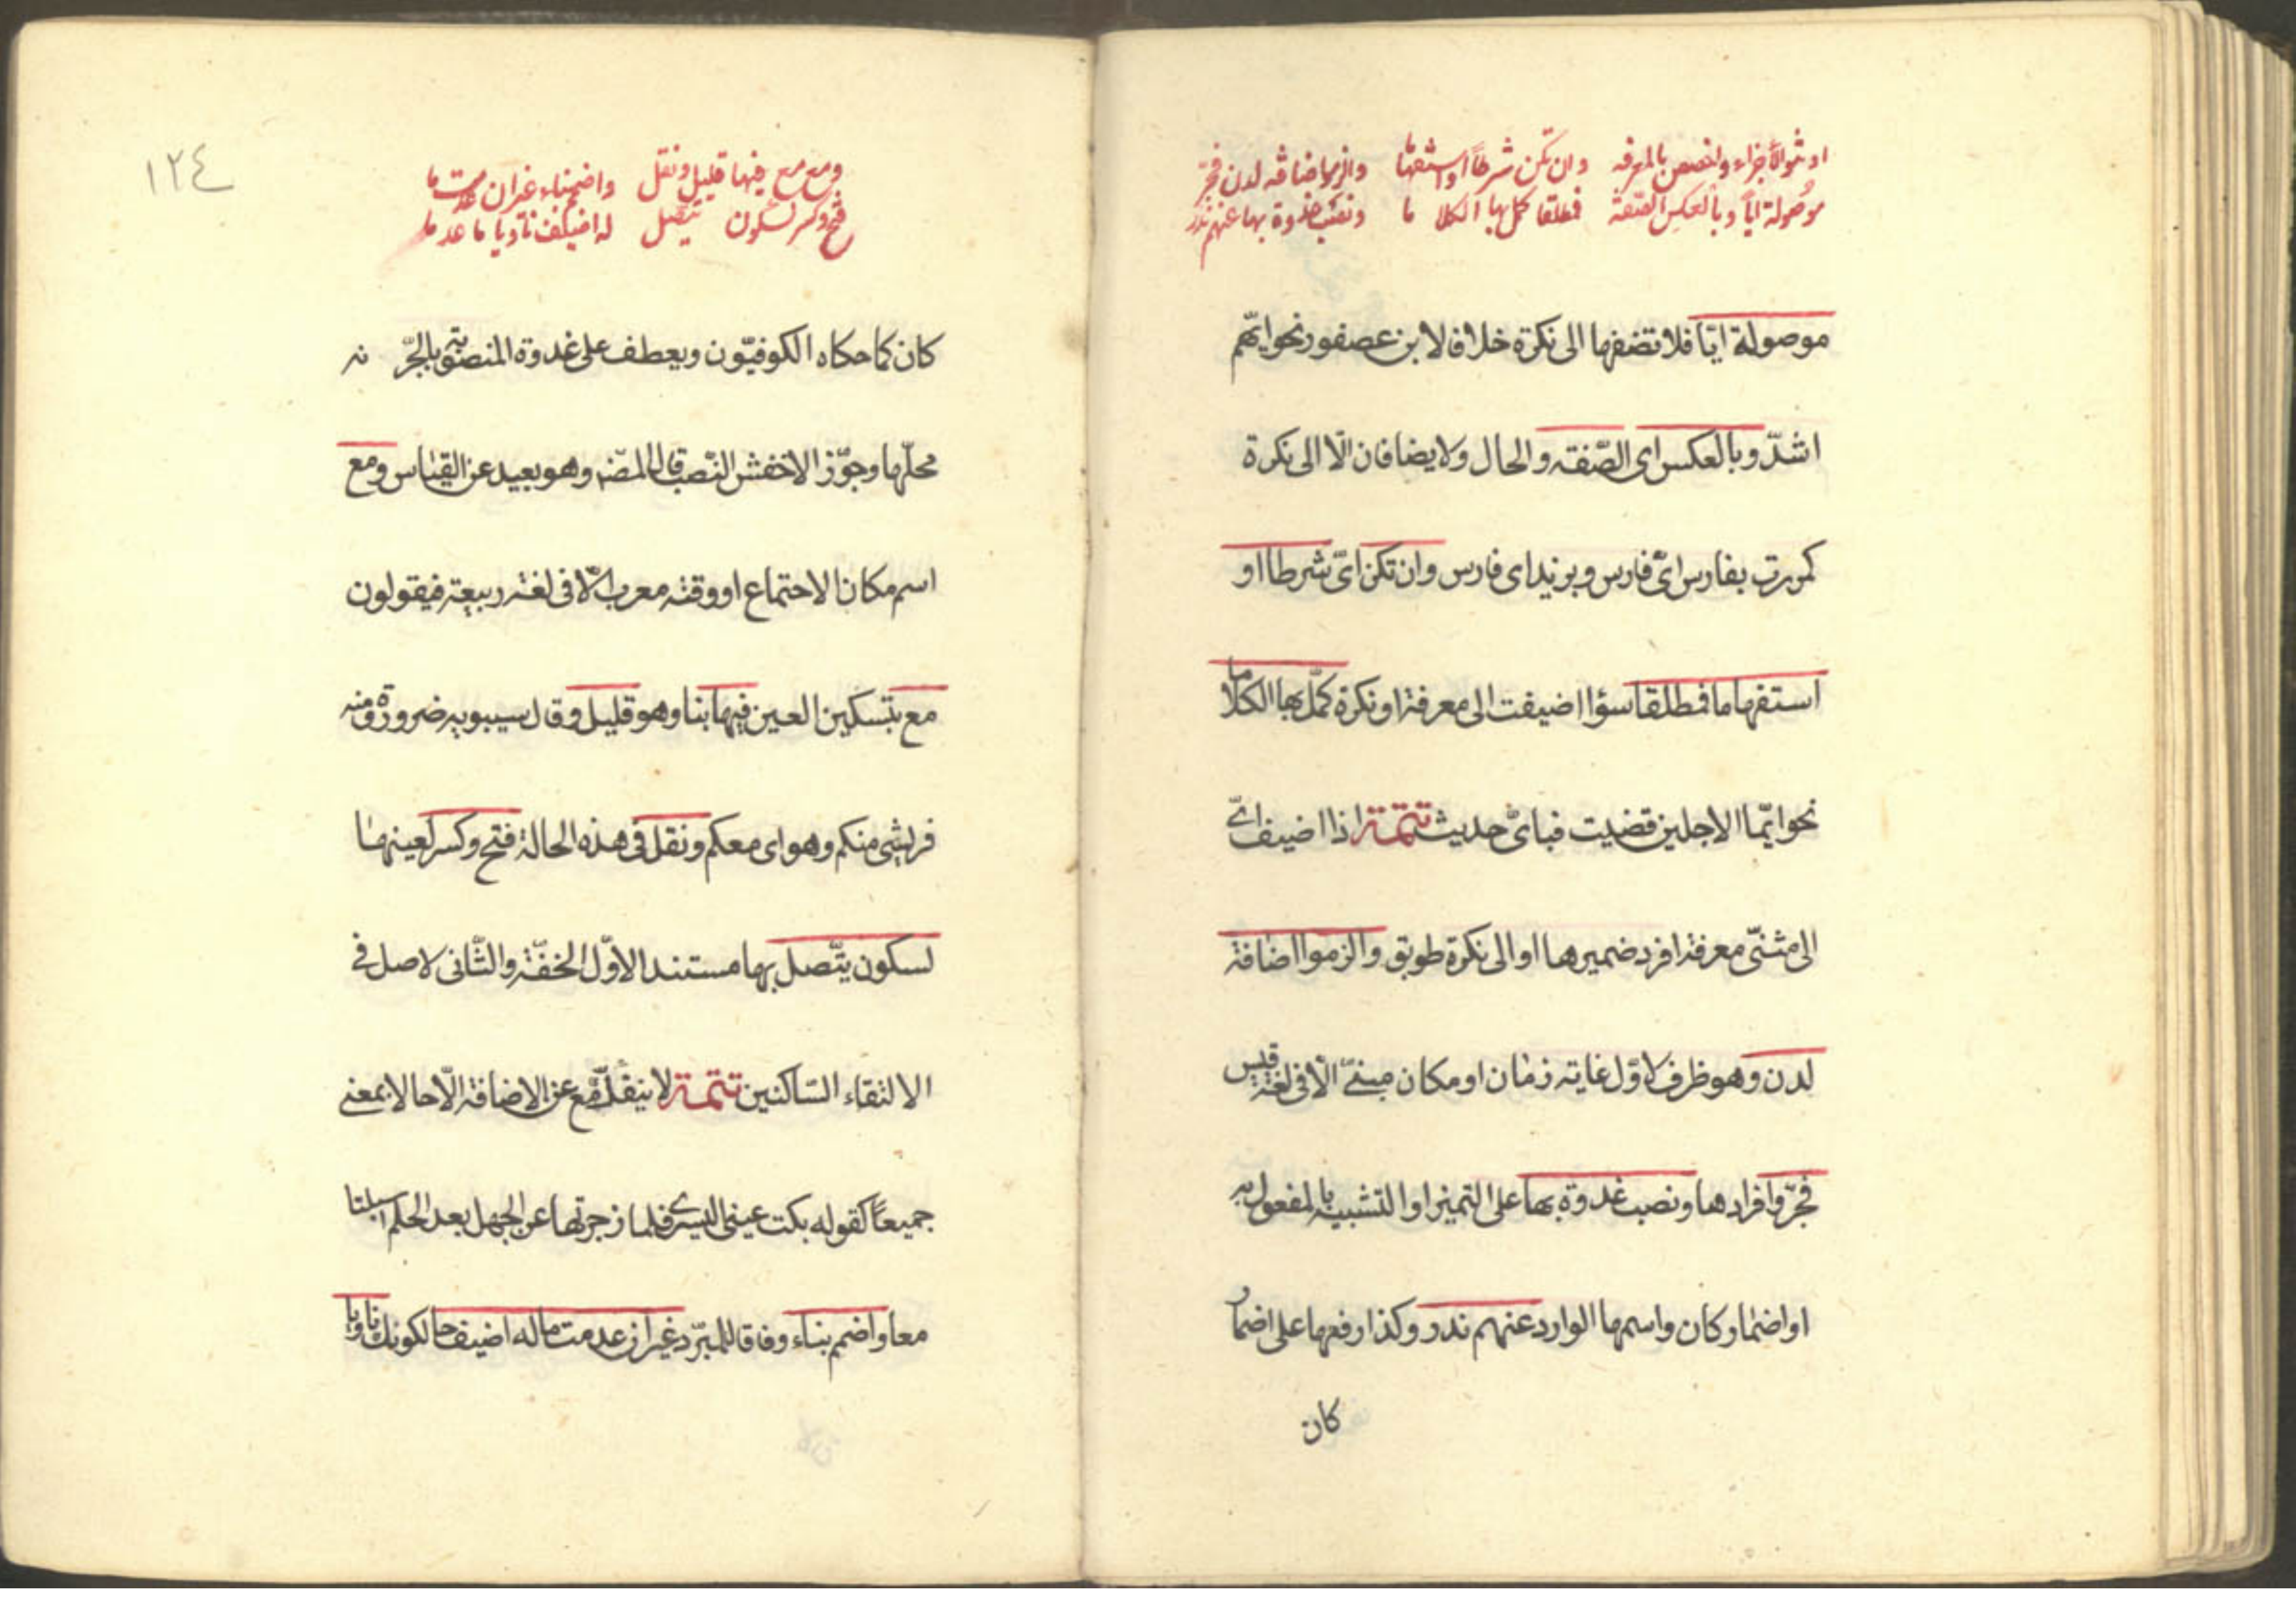 او تنو الاجزاء واخصصن بالمعرفه وان تكن شرطا او استفهاما والزموا اضافة لدن فجر
موصولة ايا وبالعكس الصفة فمطلقا كمل بها الكلا ما ونصب غدوة بها عنهم ندر
موصولة ايّا فلا تضفها الى نكرة خلافا لابن عصفور نحو ايّهم
اشدّ وبالعكس اى الصّفته والحال ولا يضافان الّا الى نكرة
كمررت بفارس اىّ فارس وبزيد اى فارس وان تكن اىّ شرطا او
استفهاما فمطلقا سؤا اضيفت الى معرفة او نكرة كمّل بها الكلاما
نحو ايّما الاجلين قضيت فباىّ حديث تتمّة اذا اضيف اىّ
الى مثنّى معرفة افرد ضميرها او الى نكرة طوبق والزموا اضافة
لدن وهو ظرف لاوّل غاية زمان او مكان مبنىّ الّا فى لغة قيس
فجرّ وافرادها ونصب غدوة بها على التميز او التشبيه بالمفعول به
او اضمار كان واسمها الوارد عنهم ندر وكذا رفعها على اضما
كان
١٢٤
ومع مع فيها قليل ونقل واضمم بناء غيرا ن عدمت ما
فتح وكسر لسكون يتصل له اضيف ناويا ما عدما
كان كما حكاه الكوفيّون ويعطف على غدوة المنصوبة بالجرّ
محلّها وجوّز الاخفش النّصب قال المصّ وهو بعيد عن القياس ومع
اسم مكان الاجتماع او وقته معرب الّا فى لغة ربيعة فيقولون
مع بتسكين العين فيها بنا وهو قليل وقال سيبويه ضرورة ومنه
فريشى منكم وهواى معكم ونقل فى هذه الحالة فتح وكسر لعينها
لسكون يتّصل بها مستند الاوّل الخفّة والثّانى لاصل فى
الالتقاء السّاكنين تتمّة لا ينفكّ مع عن الاضافة الّا حالا بمعنى
جميعًا كقوله بكت عينى اليسرى فلما زجرتها عن الجهل بعد الحلم اسبلتا
معا واضمم بناء وفاقا للمبرّد غيرا ن عدمت ما له اضيف حالكونك ناويا